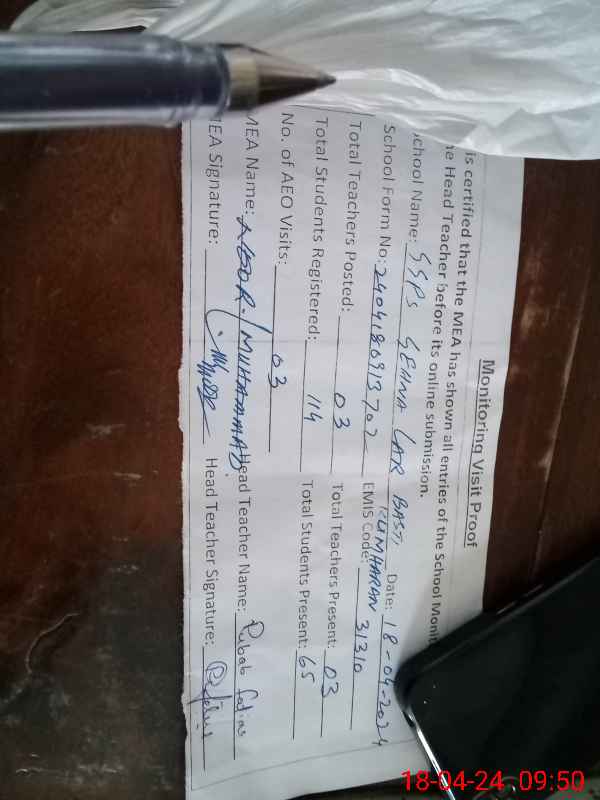 Monitoring Visit Proof
is certified that the MEA has shown all entries of the School Monit
e Head Teacher before its online submission.
chool Name: GGPS GEHNA LAR BASTI KUMHARAN Date: 18-04-2024
School Form No: 2404180913702 EMIS Code: 31310
Total Teachers Posted: 03 Total Teachers Present: 03
Total Students Registered: 114 Total Students Present: 65
No. of AEO Visits: 03
MEA Name: MUHAMMAD Head Teacher Name: Rubab
MEA Signature: Head Teacher Signature:
18-04-24 09:50